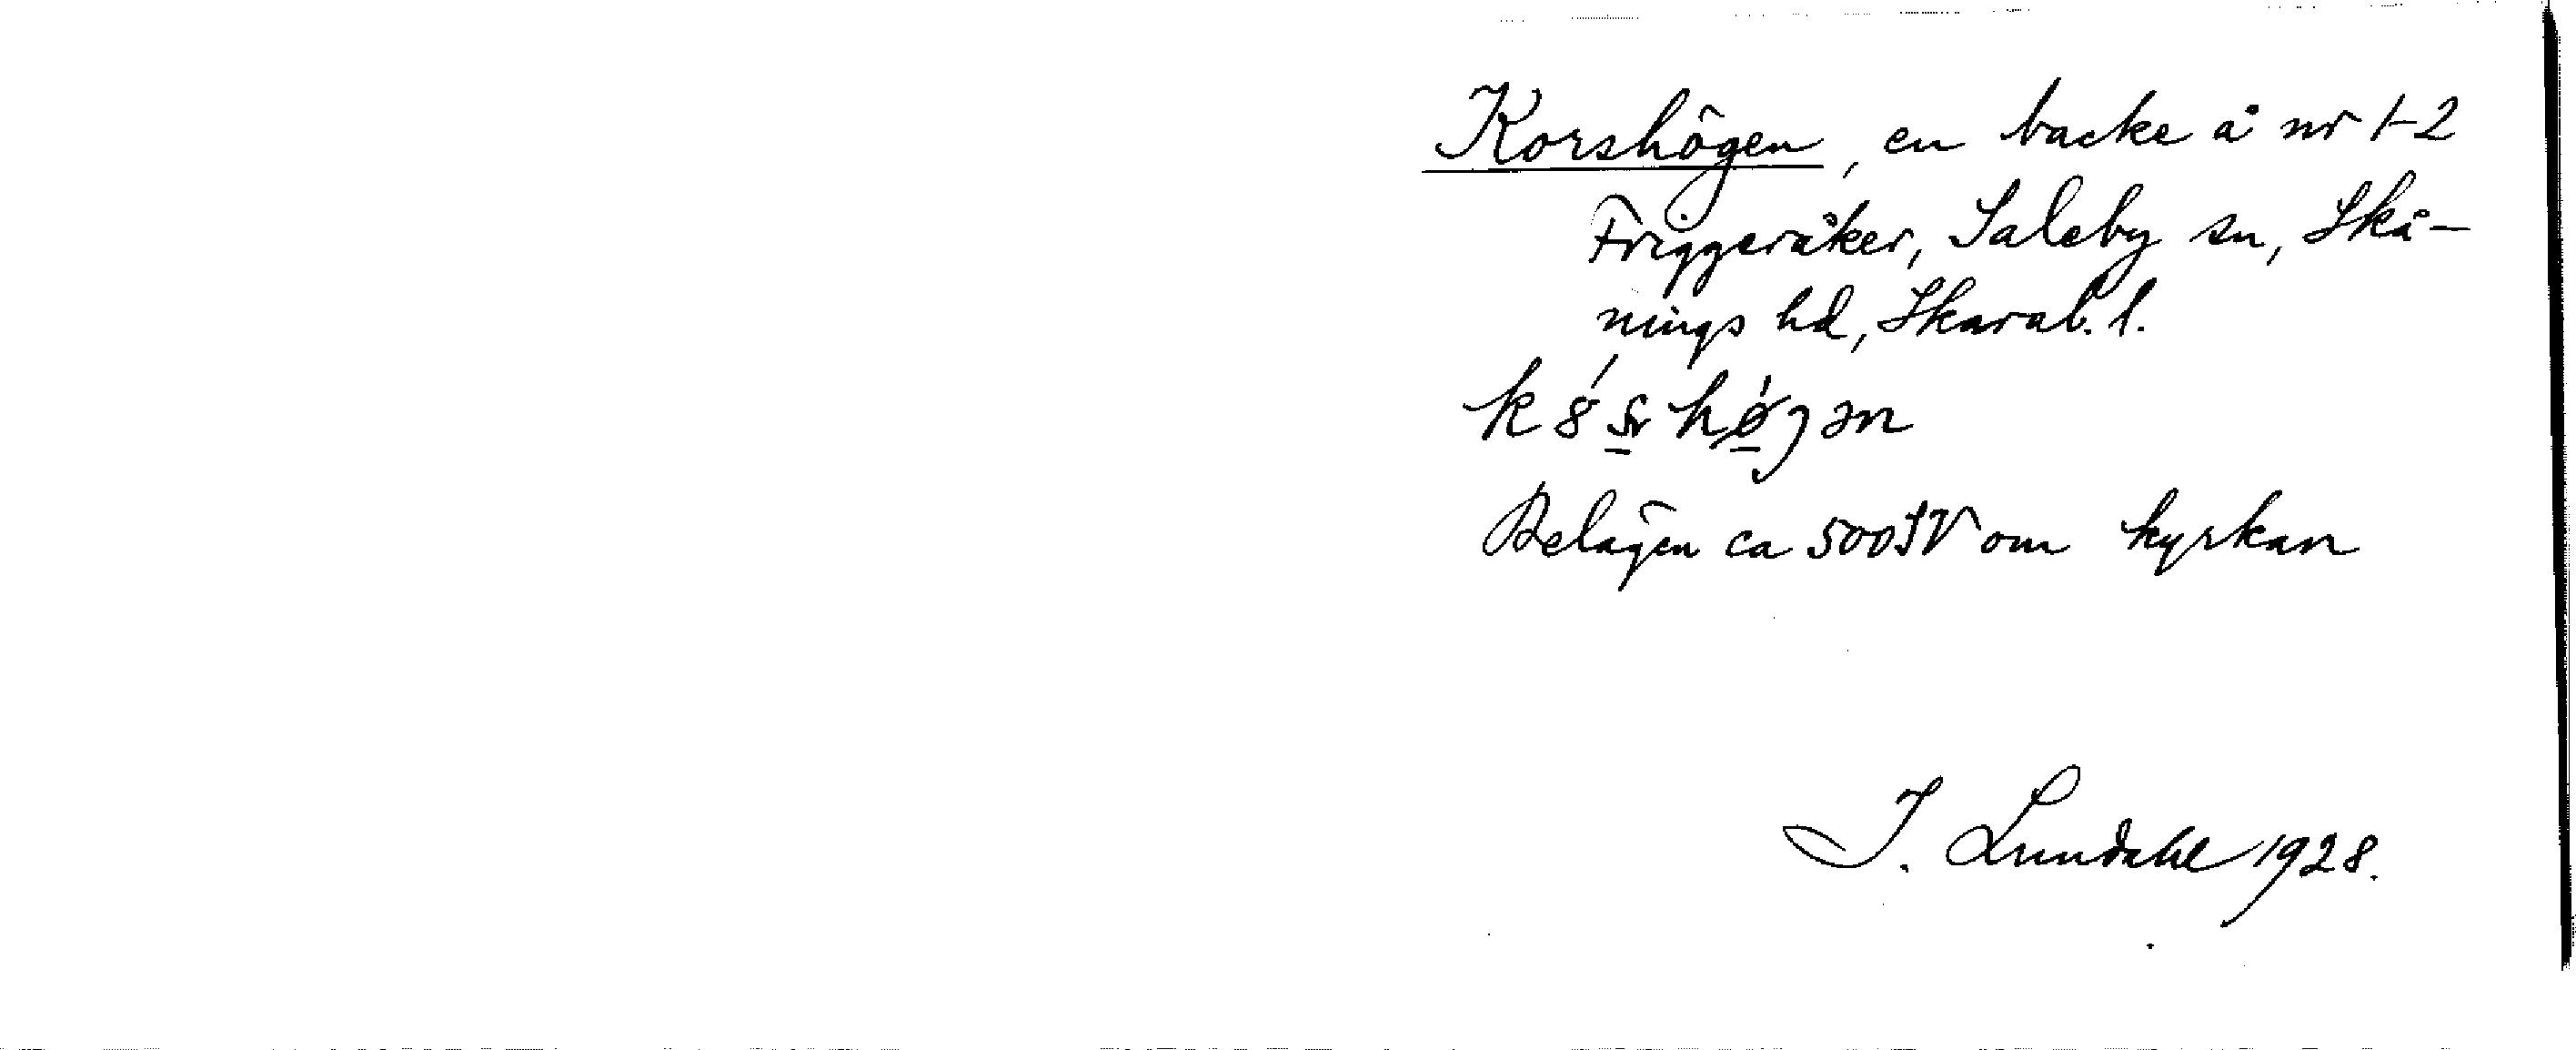 Korshögen, en backe å nr 1-2
Friggeråker, Saleby sn, Skå-
nings hd, Skarab. l.
Belägen ca 500 SV om kyrkan
I. Lundahl 1928.